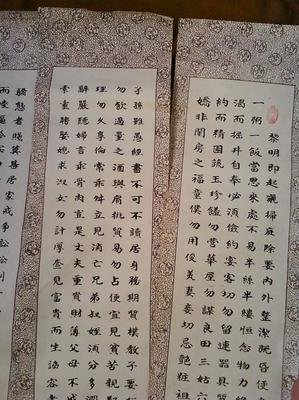 黎明即起灑掃庭除要內外整潔既昏便
一粥一飯當思來處不易半絲半縷恒念物力
渴而掘井自奉必須儉約宴客切勿留連器具質
約而精園蔬玉珍饈勿營華屋勿謀良田三姑六
嬌非閨房之福童僕勿用俊美妻妾切忌艷粧祖
子孫雖愚經書不可不讀居身務期質樸教子要
勿飲過量之酒與肩挑貿易勿占便宜見貧苦親
理勿久享倫常乖舛立見消亡兄弟叔姪須分多潤
辭嚴聽婦言乖骨肉豈是丈夫重貲財薄父母不成
索重聘娶媳求淑女勿計厚奩見富貴而生諂容
驕態者賤莫甚居家戒爭訟訟則